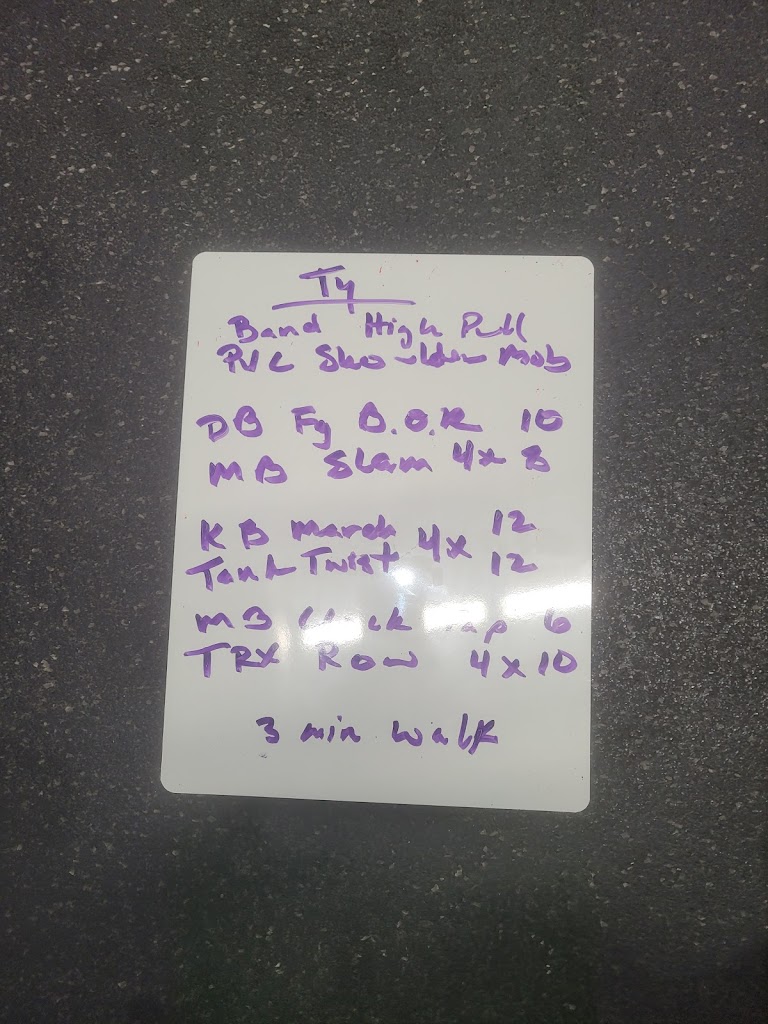 Ty
Band High Pull
PVC Shoulder Mob
DB Fy B.O.R 10
MB Slam 4x 8
KB March 4x 12
Tank Twist 12
MB 6
TRX Row 4x10
3 min walk